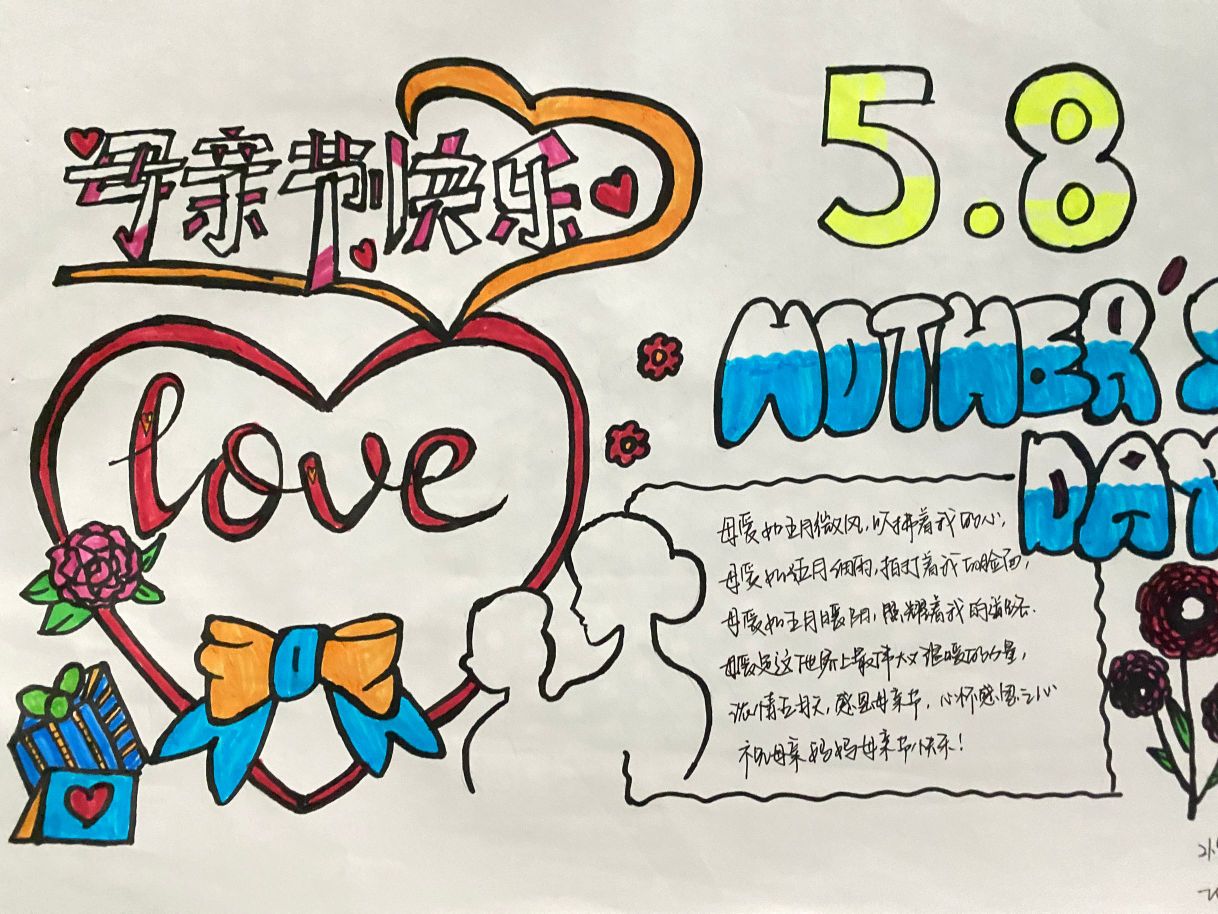 母亲节快乐
5.8
love
MOTHER'S
DAY
母爱如五月微风,吹拂着我的心,
母爱如五月细雨,拍打着我的脸面,
母爱如五月暖阳,照耀着我的道路.
母爱是这世界上最伟大又温暖的力量,
浓情五月天,感恩母亲节,心怀感恩之心
祝母亲妈妈母亲节快乐!